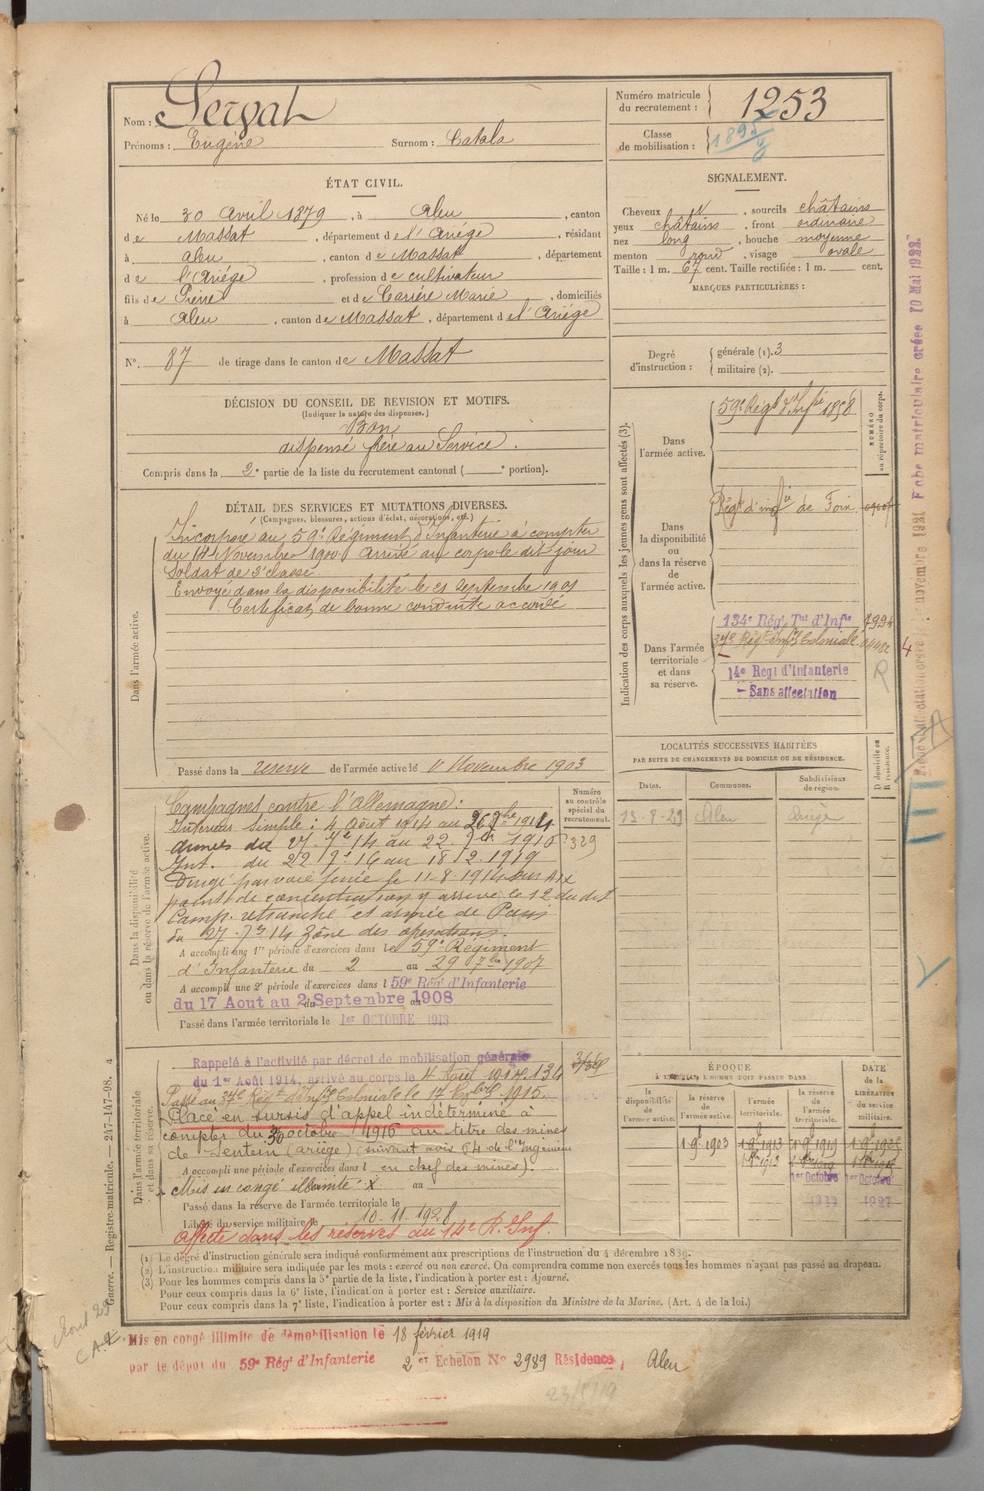 Nom : Servat
Prénoms : Eugène Surnom : Catala
Numéro matricule du recrutement : 1253
Classe de mobilisation : 1895
ÉTAT CIVIL.
Né le 30 Avril 1879, à Aleu, canton
de Massat, département de l'Ariège, résidant
à Aleu, canton de Massat, département
de l'Ariège, profession de cultivateur
fils de Pierre et de Carrère Marie, domiciliés
à Aleu, canton de Massat, département de l'Ariège
N°. 87 de tirage dans le canton de Massat
SIGNALEMENT.
Cheveux N, sourcils châtains
yeux châtains, front ordinaire
nez long, bouche moyenne
menton rond, visage ovale
Taille : 1 m. 67 cent. Taille rectifiée : 1 m. cent.
MARQUES PARTICULIÈRES :
Degré d'instruction : générale (1). 3
militaire (2).
DÉCISION DU CONSEIL DE REVISION ET MOTIFS.
(Indiquer la nature des dispenses.)
Bon
dispensé frère au Service.
Compris dans la 2e partie de la liste du recrutement cantonal ( portion).
DÉTAIL DES SERVICES ET MUTATIONS DIVERSES.
(Campagnes, blessures, actions d'éclat, décorations, etc.)
Dans l'armée active.
Incorporé au 59e Régiment d'Infanterie à compter
du 14 Novembre 1900. Arrivé au corps le dit jour
Soldat de 2e classe
Envoyé dans la disponibilité le 21 Septembre 1901
Certificat de bonne conduite accordé
Passé dans la réserve de l'armée active le 1 Novembre 1903
Indication des corps auxquels les jeunes gens sont affectés (3).
NUMÉRO au répertoire du corps.
Dans l'armée active.
59e Régt d'Infie 1858
Dans la disponibilité ou dans la réserve de l'armée active.
Régt d'infie de Foix
Dans l'armée territoriale et dans sa réserve.
134e Rég. Tal d'Infie
37e Régt Infie Coloniale
14e Régt d'Infanterie
- Sans affectation
4
R
LOCALITÉS SUCCESSIVES HABITÉES
PAR SUITE DE CHANGEMENTS DE DOMICILE OU DE RÉSIDENCE.
Dates. Communes. Subdivisions de région. D domicile ou R résidence.
13-8-29 Aleu Ariège
Dans la disponibilité ou dans la réserve de l'armée active.
Numéro au contrôle spécial du recrutement.
329
Campagnes contre l'Allemagne :
Intérieur Simple : 4 Août 1914 au 26 7bre 1914
armées du 27. 7bre 14 au 22. 1916
Int. du 22 16 au 18 2. 1919
Dirigé par voie ferrée le 11-8-1914 sur
point de concentration y arrivé le 12 du dit
Camp. retranché et armée de Paris
du 27. 7bre 14 Zône des opérations.
A accompli une 1re période d'exercices dans le 59e Régiment
d'Infanterie du 2 au 29 7bre 1907
A accompli une 2e période d'exercices dans l 59e Rég. d'Infanterie
du 17 Aout au 2 Septembre 1908
Passé dans l'armée territoriale le 1er OCTOBRE 1913
Dans l'armée territoriale et dans sa réserve.
Rappelé à l'activité par décret de mobilisation générale
du 1er Août 1914, arrivé au corps le 4 Août 1914. 134
Passé au 37e Régt d'Infie Coloniale le 17 1915.
Placé en sursis d'appel indéterminé à
compter du 30 octobre 1916 au titre des mines
de Sentein (Ariège) (suivant avis 64 de l'Ingénieur
A accompli une période d'exercices dans l en chef des mines).
Mis en congé illimité : X au
Passé dans la réserve de l'armée territoriale le
Libéré du service militaire le 10. 11. 1928
Affecté dans les réserves du 14e R. Inf.
ÉPOQUE
À LAQUELLE L'HOMME DOIT PASSER DANS
la disponibilité de l'armée active. la réserve de l'armée active. l'armée territoriale. la réserve de l'armée territoriale. DATE de la LIBÉRATION du service militaire.
1 9 1903 1 9 1913 1 9 1919 1 9 1925
1er Octobre 1er Octobre
1927
(1) Le degré d'instruction générale sera indiqué conformément aux prescriptions de l'instruction du 4 décembre 1889.
(2) L'instruction militaire sera indiquée par les mots : exercé ou non exercé. On comprendra comme non exercés tous les hommes n'ayant pas passé au drapeau.
(3) Pour les hommes compris dans la 5e partie de la liste, l'indication à porter est : Ajourné.
Pour ceux compris dans la 6e liste, l'indication à porter est : Service auxiliaire.
Pour ceux compris dans la 7e liste, l'indication à porter est : Mis à la disposition du Ministre de la Marine. (Art. 4 de la loi.)
Guerre. — Registre-matricule. — 247-147-98. 4
Mis en congé illimité de démobilisation le 18 février 1919
par le dépot du 59e Rég d'Infanterie 2e Echelon No 2989 Résidence, Aleu
Fiche matriculaire créée 10 Mai 1922.